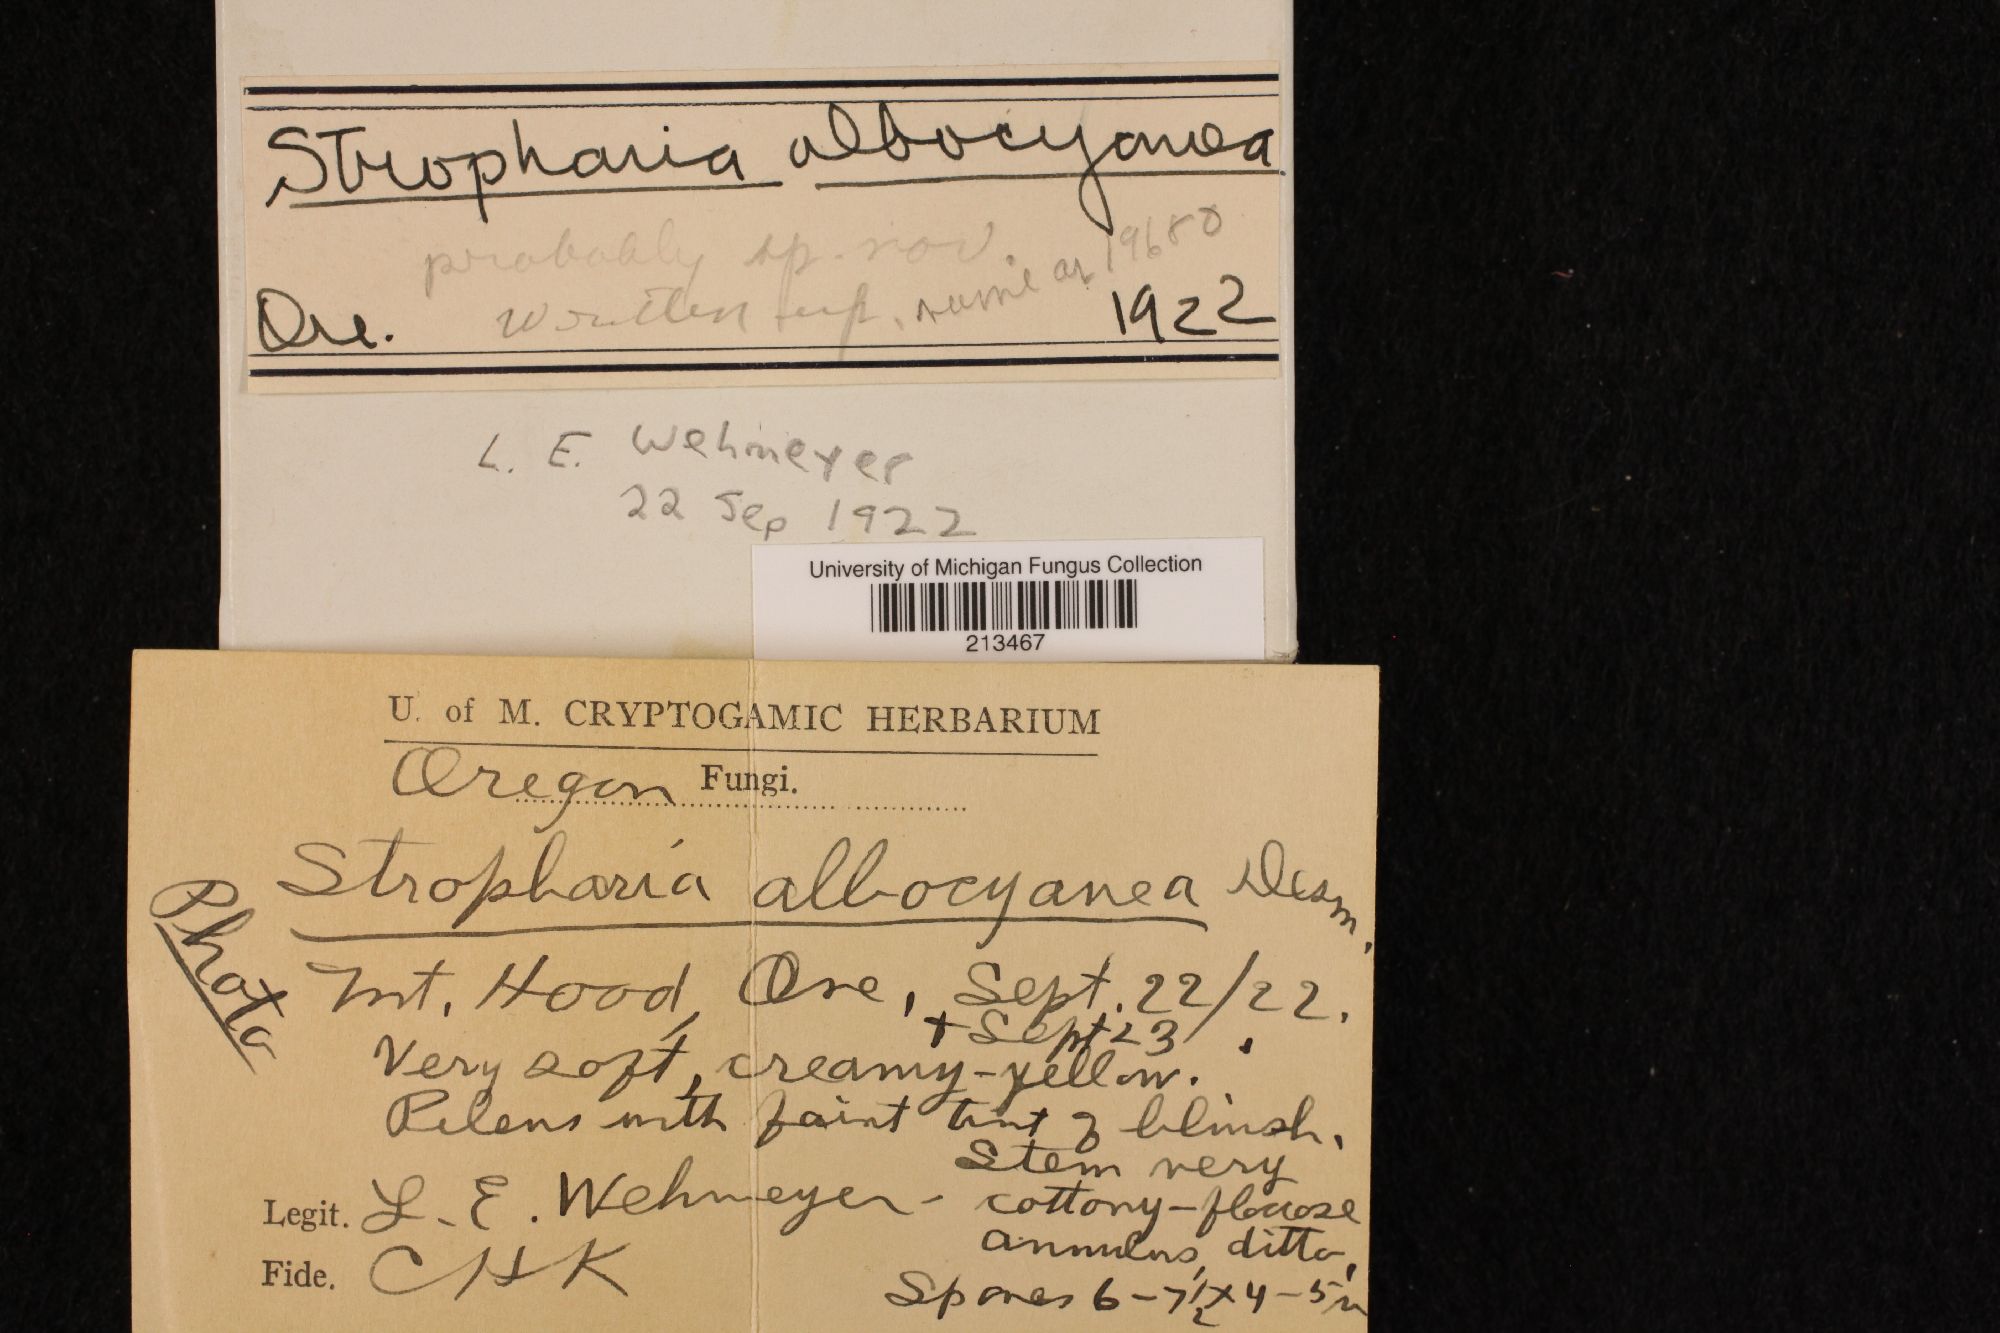 Stropharia albocyanea
probably sp. nov.
Written up, same as 19680
Ore. 1922
L. E. Wehmeyer
22 Sep 1922
University of Michigan Fungus Collection
213467
U. of M. CRYPTOGAMIC HERBARIUM
Oregon Fungi.
Stropharia albocyanea Desm.
Photo
Mt. Hood, Ore, Sept. 22/22.
+ Sept 23
Very soft, creamy-yellow.
Pileus with faint tint of bluish.
Stem very
Legit. L. E. Wehmeyer - cottony-floccose
annulus, ditto,
Fide. CHK
Spores 6-7 1/2 x 4-5 µ